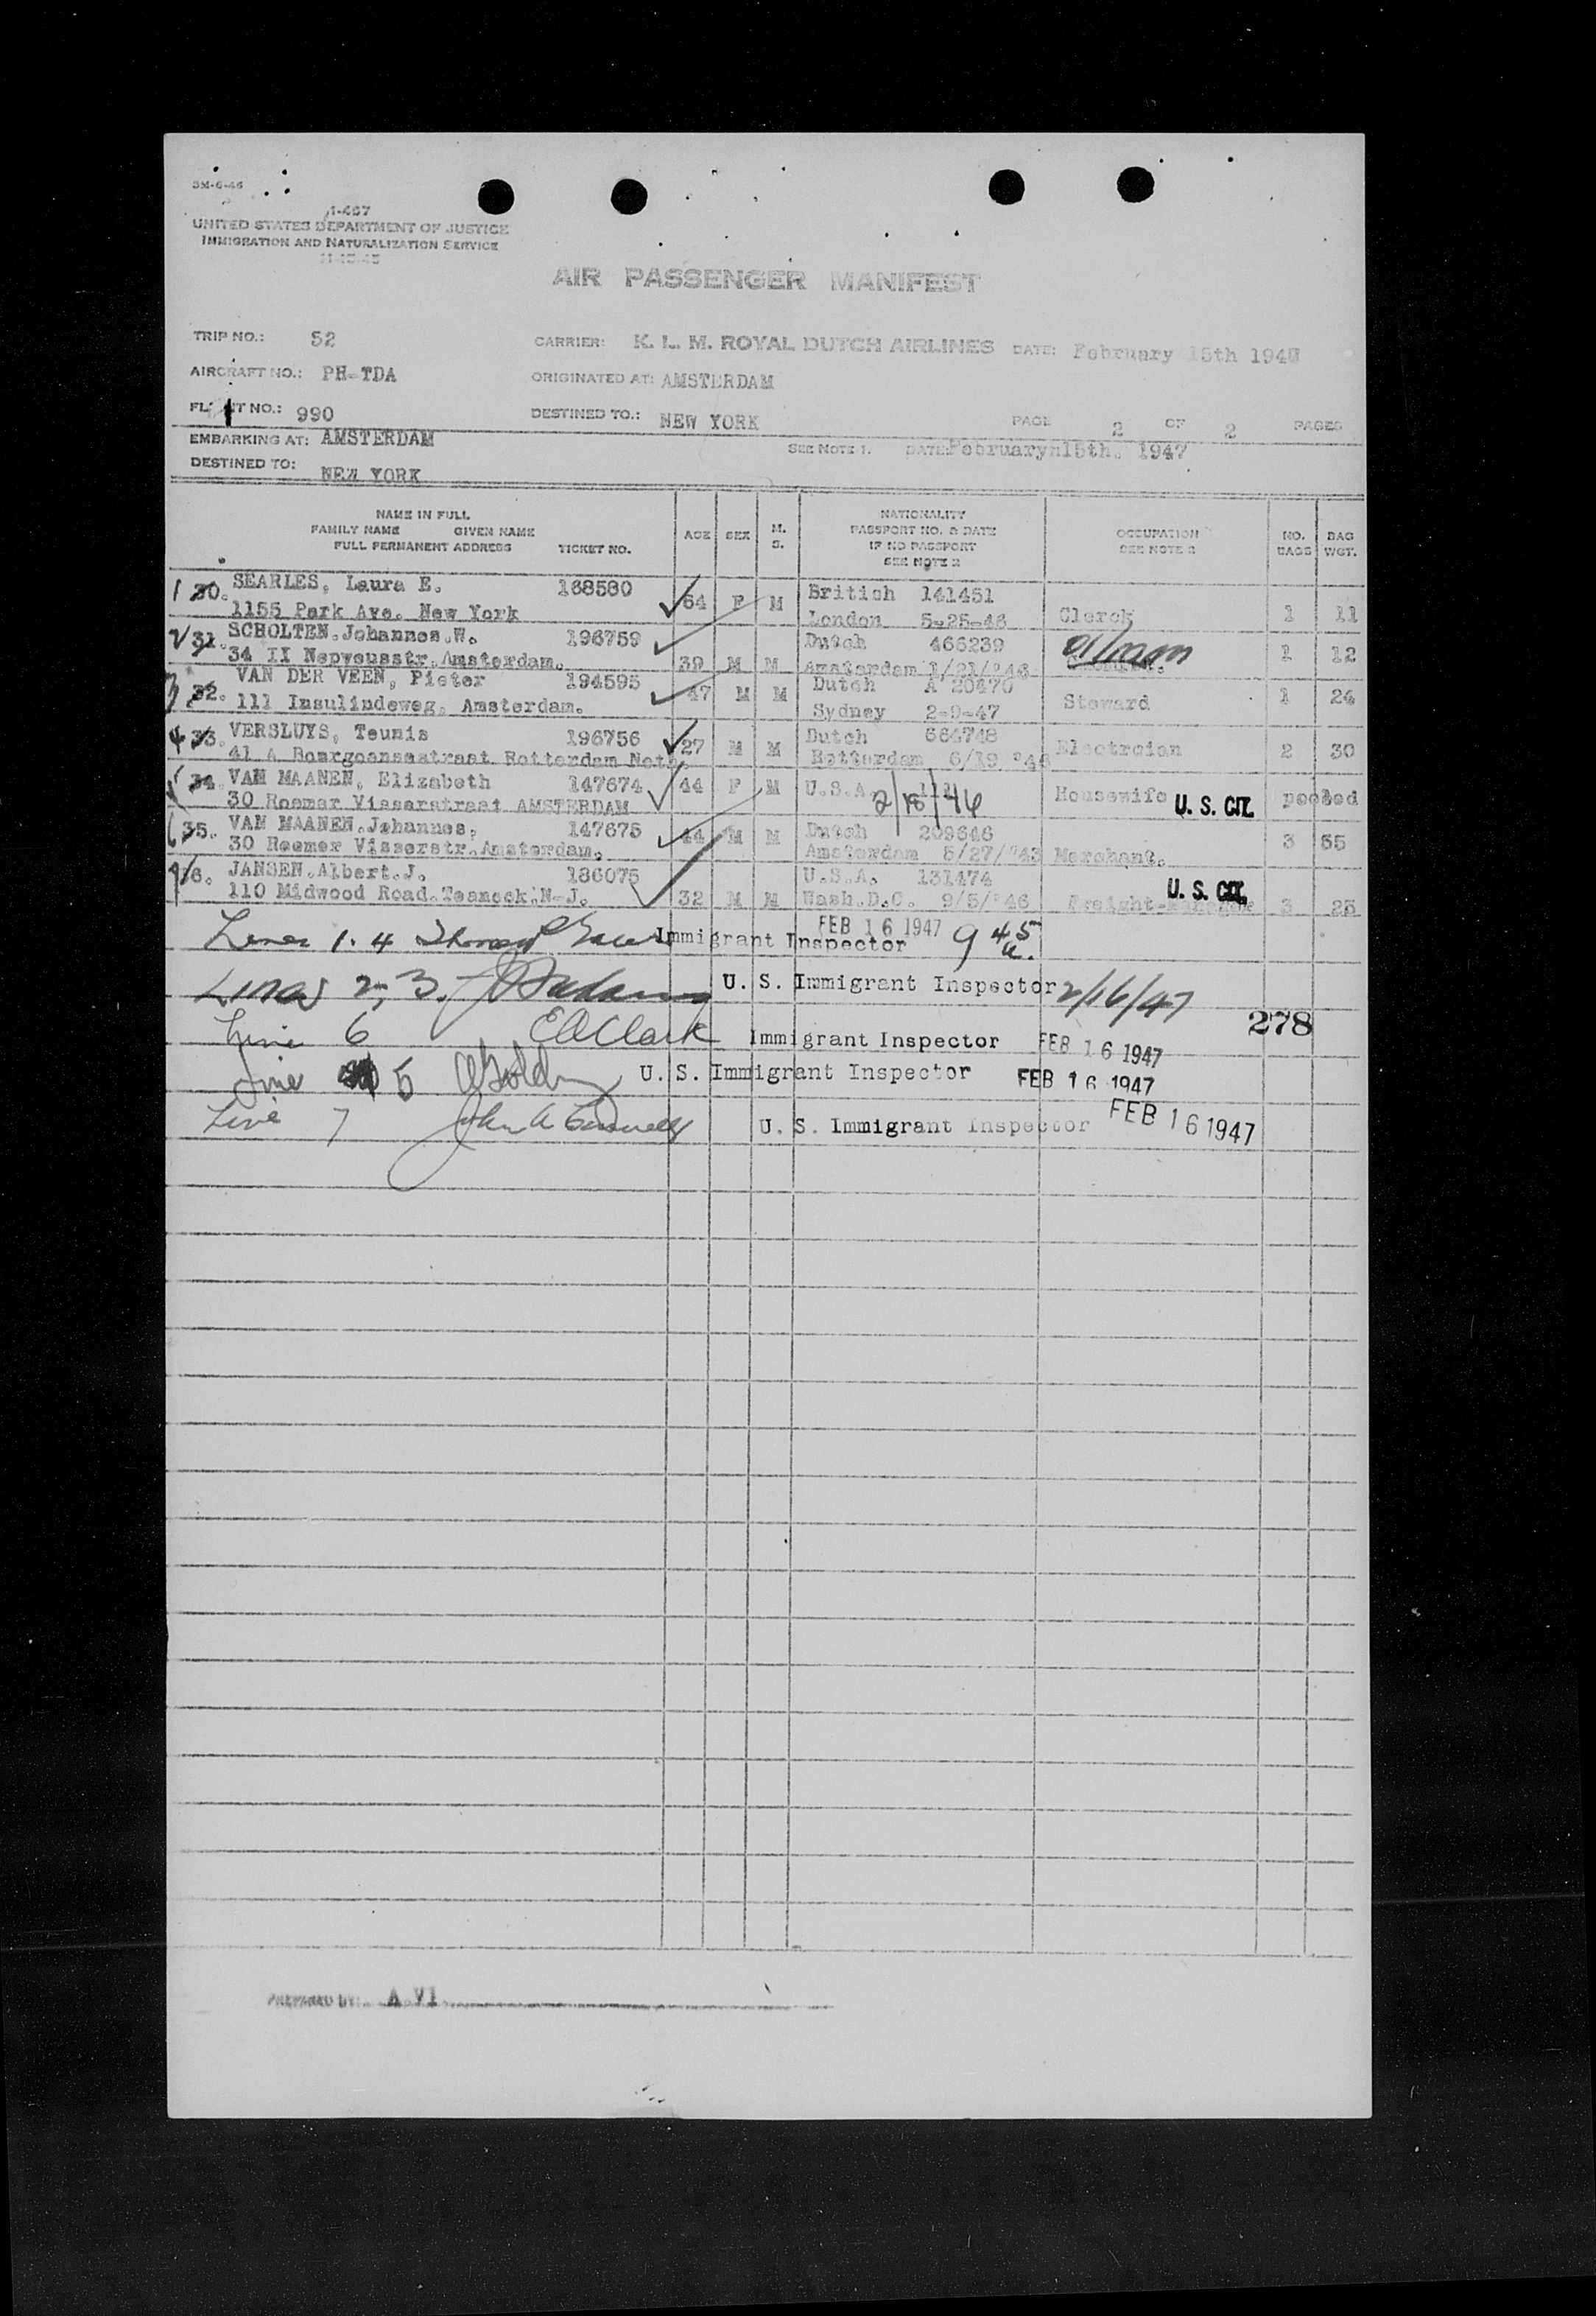 3M-6-46
I-467
UNITED STATES DEPARTMENT OF JUSTICE
IMMIGRATION AND NATURALIZATION SERVICE
11-15-45
AIR PASSENGER MANIFEST
TRIP NO.: 52 CARRIER: K. L. M. ROYAL DUTCH AIRLINES DATE: February 15th 194
AIRCRAFT NO.: PH-TDA ORIGINATED AT: AMSTERDAM
NO.: 990 DESTINED TO.: NEW YORK PAGE 2 OF 2 PAGES
EMBARKING AT: AMSTERDAM SEE NOTE 1. DATE: February 15th. 1947
DESTINED TO: NEW YORK
NAME IN FULL
FAMILY NAME GIVEN NAME
FULL PERMANENT ADDRESS TICKET NO.
AGE SEX M. S.
NATIONALITY
PASSPORT NO. & DATE
IF NO PASSPORT
SEE NOTE 2
OCCUPATION
SEE NOTE 3
NO. BAGS BAG WGT.
1 30. SEARLES, Laura E. 168580 64 F M British 141451
1155 Park Ave. New York London 5-25-46 Clerck 1 11
2 31. SCHOLTEN.Johannes.W. 196759 Dutch 466239
34 II Nepveusstr.Amsterdam. 39 M M Amsterdam 1/21/'46 1 12
3 32. VAN DER VEEN, Pieter 194595 47 M M Dutch A 20470
111 Insulindeweg. Amsterdam. Sydney 2-9-47 Steward 1 24
4 33. VERSLUYS, Teunis 196756 27 M M Dutch 664748
41 A Boergoensestraat Rotterdam Neth. Rotterdam 6/19 '46 Electrcian 2 30
34. VAN MAANEN, Elizabeth 147674 44 F M U.S.A. 2/18/46 Housewife U. S. CIT. pooled
30 Roemer Visserstraat AMSTERDAM
35. VAN MAANEN.Johannes, 147675 44 M M Dutch 209646
30 Roemer Visserstr.Amsterdam. Amsterdam 5/27/'43 Merchant. 3 55
JANSEN.Albert.J. 186075 U.S.A. 131474
110 Midwood Road.Teaneck.N-J. 32 M M Wash.D.C. 9/5/'46 U. S. CIT. 3 25
Lines 1. 4 Immigrant Inspector FEB 16 1947 9 45 a.
Lines 2, 3. U. S. Immigrant Inspector 2/16/47
278
Line 6 E A Clark Immigrant Inspector FEB 16 1947
Line 5 U. S. Immigrant Inspector FEB 16 1947
Line 7 John A U. S. Immigrant Inspector FEB 16 1947
PREPARED BY: A VI